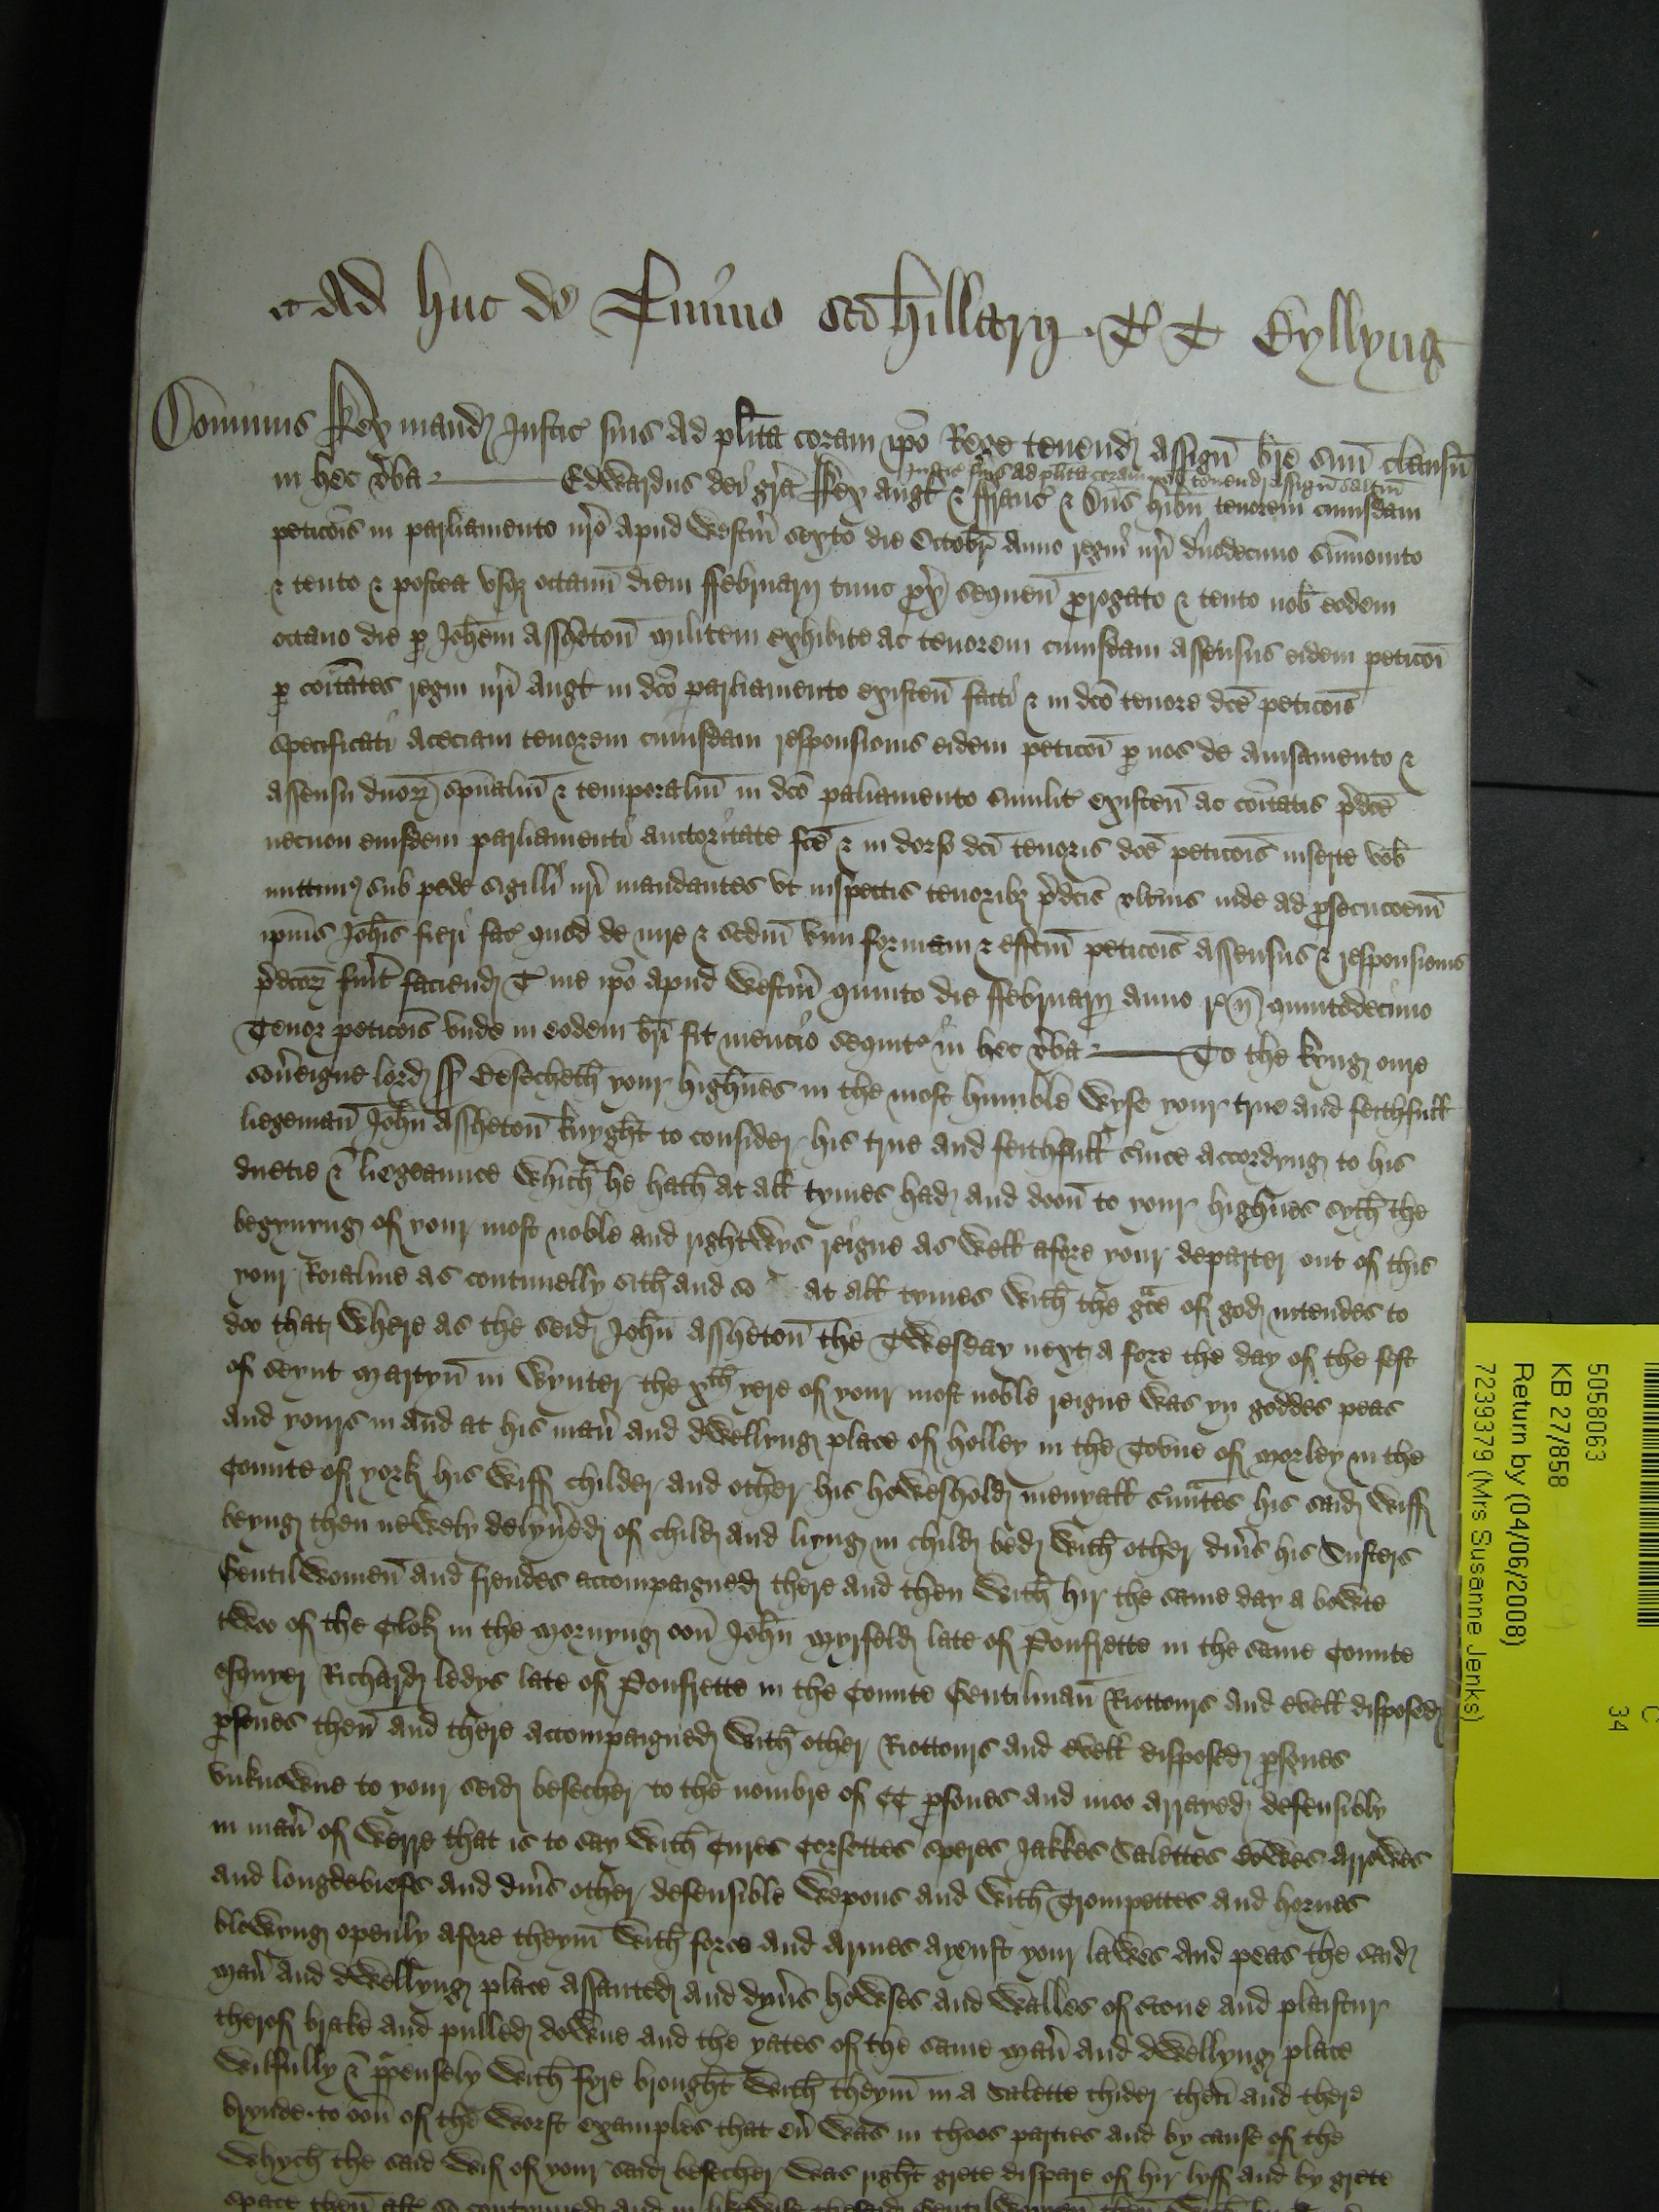 Ad huc de Termino sci Hillarij T T Byllyng
Dominus Rex mand Justic suis ad plita coram ipo Rege tenend assign bre suu clausu
in hec vba Edwardus dei gra Rex Angl & Franc & Dns Hibn Justic suis ad plita coram nob tenend assign saltm tenorem cuiusdam
peticois in parliamento nro apud Westm sexto die Octobr anno regni nri duodecimo sumonito
& tento & postea vsq octauu diem ffebruarij tunc px sequen prorogato & tento nob eodem
octauo die p Johem Assheton militem exhibite ac tenorem cuiusdam assensus eidem peticoi
p coitates regni nri Angl in dco parliamento existen facti & in dco tenore dce peticois
specificati aceciam tenorem cuiusdam responsionis eidem peticoi p nos de auisamento &
assensu dnor spualiu & temporaliu in dco paliamento similit existen ac coitatis pdce
necnon eiusdem parliamenti auctoritate fce & in dorso dci tenoris dce peticois inserte vob
mittim sub pede sigilli nri mandantes vt inspectis tenorib pdcis vlterius inde ad psecucoem
ipius Johis fieri fac quod de iure & scdm vim formam & effcm peticois assensus & responsionis
pdcor fuit faciend T me ipo apud Westm quinto die ffebruarij anno r n quintodecimo
Tenor peticois vnde in eodem bri fit mencio sequit in hec vba To the kyng oure
soueigne lord Besecheth your highnes in the most humble wyse your true and feithfull
liegeman John Assheton knyght to consider his true and feithfull suice accordyng to his
duetie & liegeaunce which he hath at all tymes had and doon to your highnes syth the
begynyng of your most noble and rightwys reigne as well afore your departer out of this
your Roialme as contynuelly sith and so at all tymes with the gce of god intendes to
doo that where as the seid John Assheton the Twesday next a fore the day of the fest
of Seynt Martyn in Wynter the xth yere of your most noble reigne was yn goddes peas
and yours in and at his man and dwellyng place of Holley in the Towne of Morley in the
Counte of york his wiff childer and other his howeshold menyall suntes his said wiff
beyng then newely delyued of child and liyng in child bed with other diuse his Susters
Gentilwomen and frendes accompaigned there and then with hir the same day a bowte
twoo of the Clok in the mornyng oon John Myrfeld late of Ponfrette in the same Counte
esquyer Richard ledys late of Ponfrette in the Counte Gentilman Riottours and evell disposed
psones then and there accompaigned with other Riottours and evell disposed psones
vnknowne to your seid besecher to the nombre of CC psones and moo arrayed defensibly
in man of werre that is to say with Cures Corsettes speres Jakkes Salettes Bowes Arrowes
and longdebiefs and diuse other defensible wepons and with Trompettes and hornes
blowyng openly afore theym with force and armes ayenst your lawes and peas the said
man and dwellyng place assauted and dyuse howses and walles of stone and plastur
therof brake and pulled downe and the yates of the same man and dwellyng place
wilfully & ppensely with fyre brought with theym in a salette thider then and there
brynde to oon of the worst examples that eu was in thoos parties and by cause of the
whych the said wif of your said besecher was right grete dispare of hir lyff and by grete
space then aft so contynued and in likewise the seid Gentilwomen then with hir
5058063
KB 27/858
Return by (04/06/2008)
7239379 (Mrs Susanne Jenks)
C
34